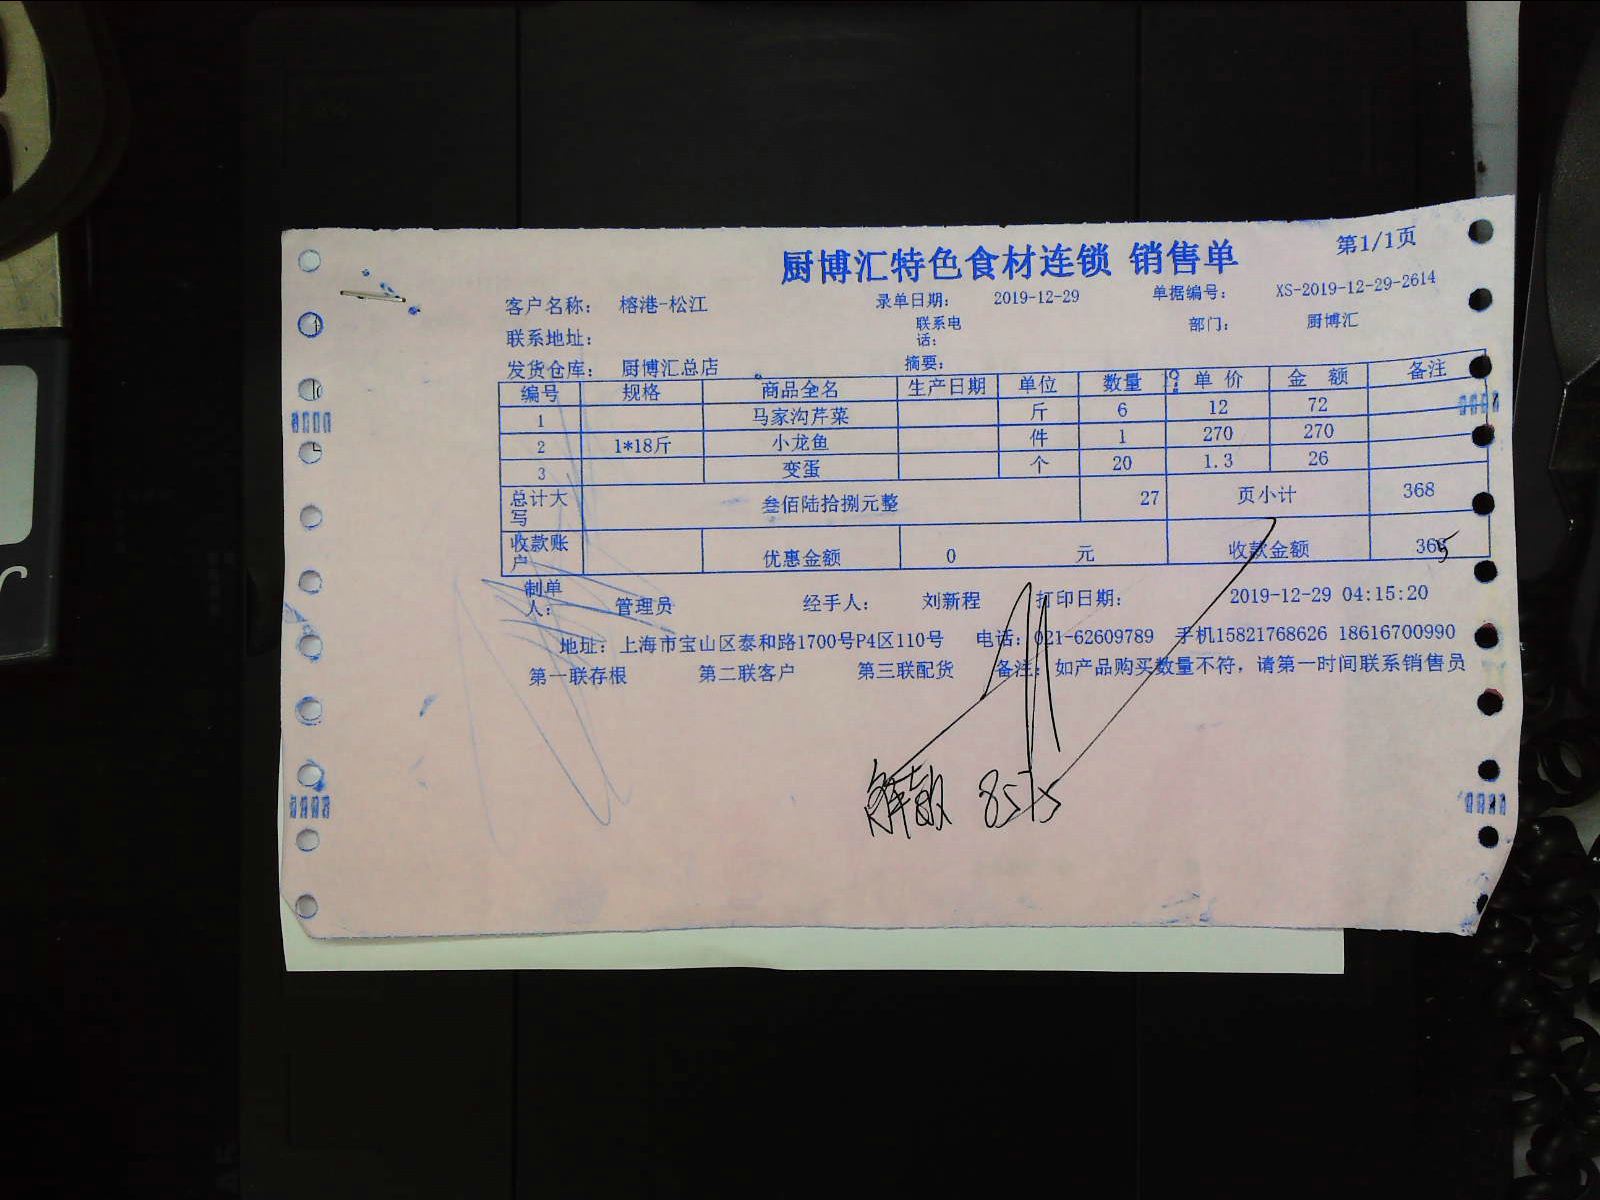 厨博汇特色食材连锁 销售单
第1/1页
客户名称： 榕港-松江 录单日期： 2019-12-29 单据编号： XS-2019-12-29-2614
联系地址： 联系电话： 部门： 厨博汇
发货仓库： 厨博汇总店 摘要：
编号 规格 商品全名 生产日期 单位 数量 单价 金额 备注
1 马家沟芹菜 斤 6 12 72
2 1*18斤 小龙鱼 件 1 270 270
3 变蛋 个 20 1.3 26
总计大写 叁佰陆拾捌元整 27 页小计 368
收款账户 优惠金额 0 元 收款金额 365
制单人： 管理员 经手人： 刘新程 打印日期： 2019-12-29 04:15:20
地址：上海市宝山区泰和路1700号P4区110号 电话：021-62609789 手机15821768626 18616700990
第一联存根 第二联客户 第三联配货 备注：如产品购买数量不符，请第一时间联系销售员